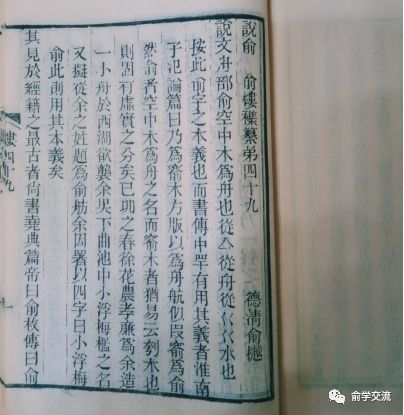 說俞 俞樓襍纂弟四十九
德清俞樾
說文舟部俞空中木爲舟也從亼從舟從巜巜水也
按此俞字之本義也而書傳中罕有用其義者淮南
子氾論篇曰乃爲窬木方版以爲舟航似叚窬爲俞
然俞者空中木爲舟之名而窬木者猶易云刳木也
則固有虛實之分矣己丑之春徐花農孝廉爲余造
一小舟於西湖欲襲余吳下曲池中小浮梅檻之名
又擬從余之姓題爲俞舫余因署以四字曰小浮梅
俞此則用其本義矣
其見於經籍之最古者尚書堯典篇帝曰俞枚傳曰俞
樓四十九
一
俞学交流